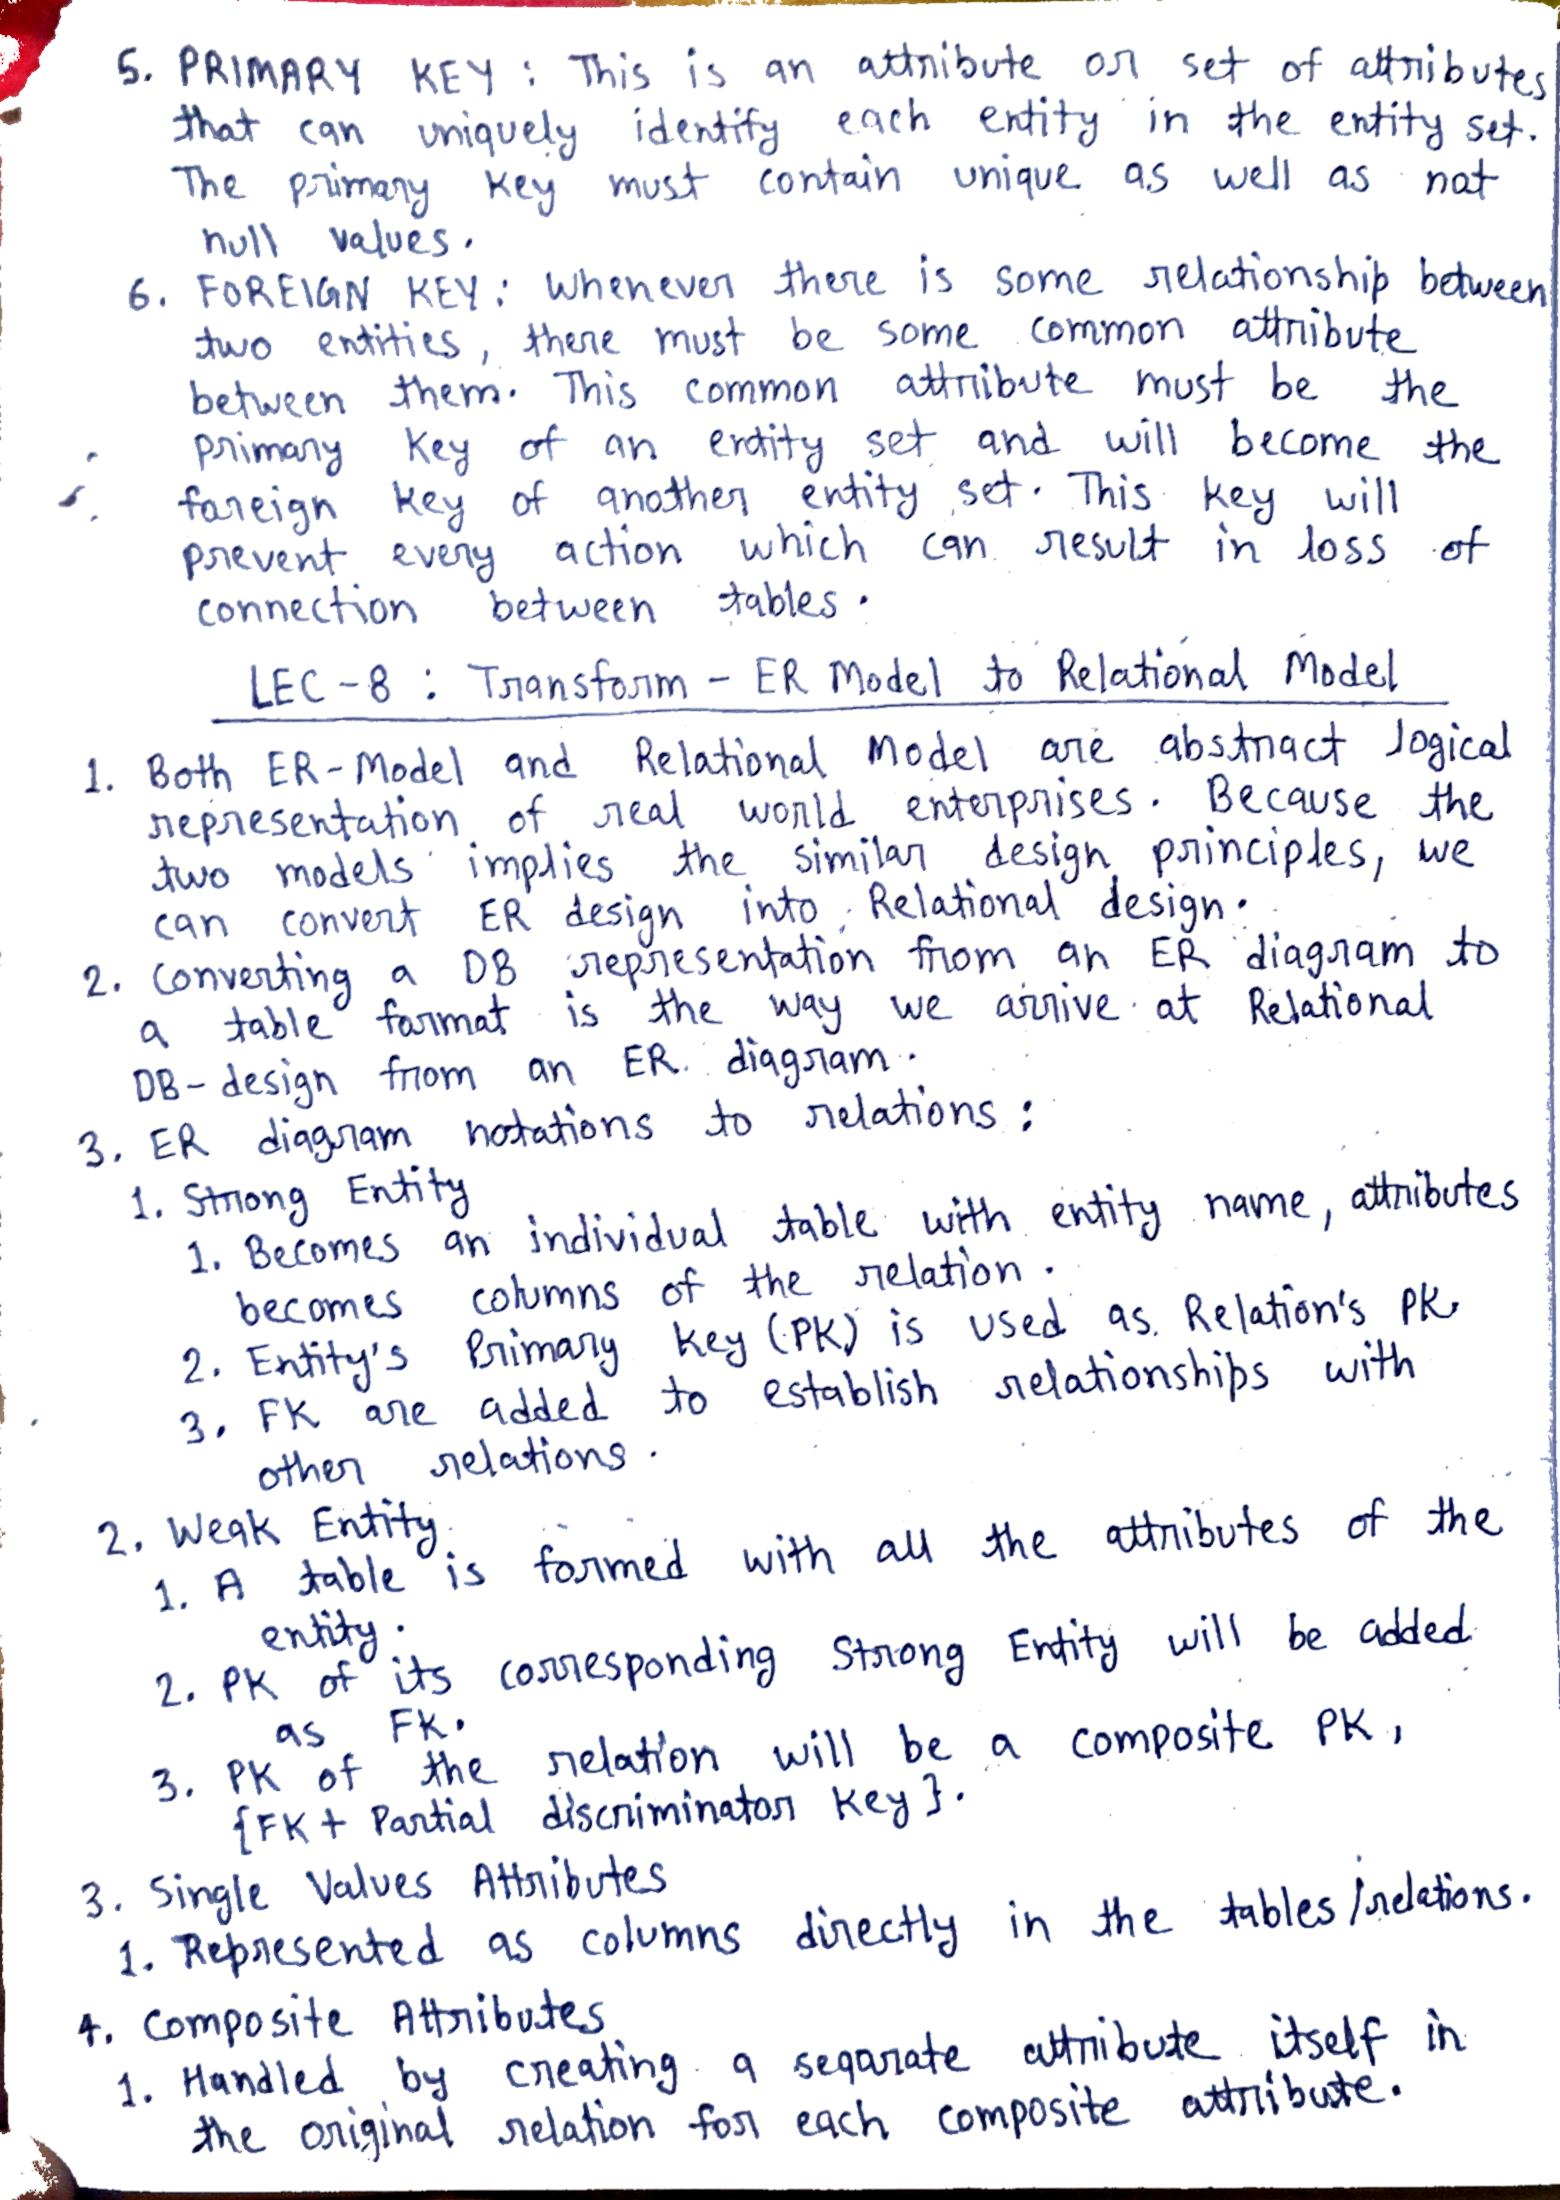 5. PRIMARY KEY : This is an attribute or set of attributes
that can uniquely identify each entity in the entity set.
The primary key must contain unique as well as not
null values.
6. FOREIGN KEY : Whenever there is some relationship between
two entities, there must be some common attribute
between them. This common attribute must be the
primary key of an entity set and will become the
foreign key of another entity set. This key will
prevent every action which can result in loss of
connection between tables.
LEC-8 : Transform - ER Model to Relational Model
1. Both ER-Model and Relational Model are abstract logical
representation of real world enterprises. Because the
two models implies the similar design principles, we
can convert ER design into Relational design.
2. Converting a DB representation from an ER diagram to
a table format is the way we arrive at Relational
DB-design from an ER diagram.
3. ER diagram notations to relations :
1. Strong Entity
1. Becomes an individual table with entity name, attributes
becomes columns of the relation.
2. Entity's Primary Key (PK) is used as Relation's PK.
3. FK are added to establish relationships with
other relations.
2. Weak Entity
1. A table is formed with all the attributes of the
entity.
2. PK of its corresponding Strong Entity will be added
as FK.
3. PK of the relation will be a composite PK,
{FK + Partial discriminator Key}.
3. Single Values Attributes
1. Represented as columns directly in the tables/relations.
4. Composite Attributes
1. Handled by creating a seqarate attribute itself in
the original relation for each composite attribute.